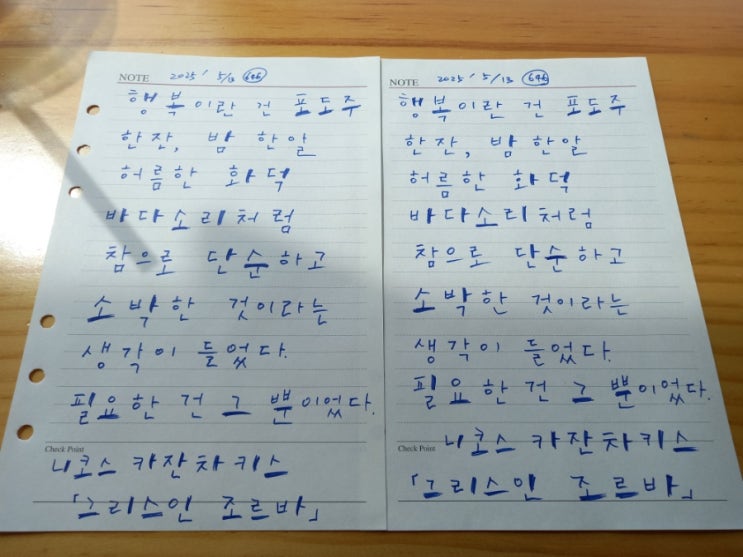 NOTE 2025/ 5/13 646
행복이란 건 포도주
한잔, 밤 한알
허름한 화덕
바다소리처럼
참으로 단순하고
소박한 것이라는
생각이 들었다.
필요한 건 그 뿐이었다.
Check Point
니코스 카잔차키스
「그리스인 조르바」
NOTE 2025/ 5/13 646
행복이란 건 포도주
한잔, 밤 한알
허름한 화덕
바다소리처럼
참으로 단순하고
소박한 것이라는
생각이 들었다.
필요한 건 그 뿐이었다.
Check Point
니코스 카잔차키스
「그리스인 조르바」